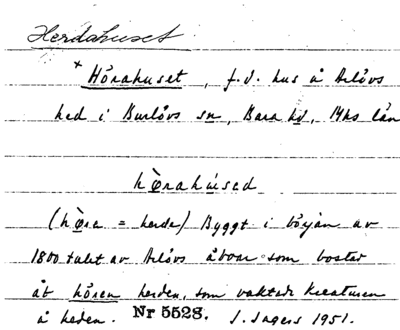 Herdahuset
× Hörahuset, f.d. hus å Arlövs
hed i Burlövs sn, Bara hd, Mhs län
hœ̀rahúsed
(hœ̀ra = herde) Byggt i början av
1800 talet av Arlövs åboar som bostad
åt hören herden, som vaktade kreaturen
å heden. Nr 5528. I. Ingers 1951.